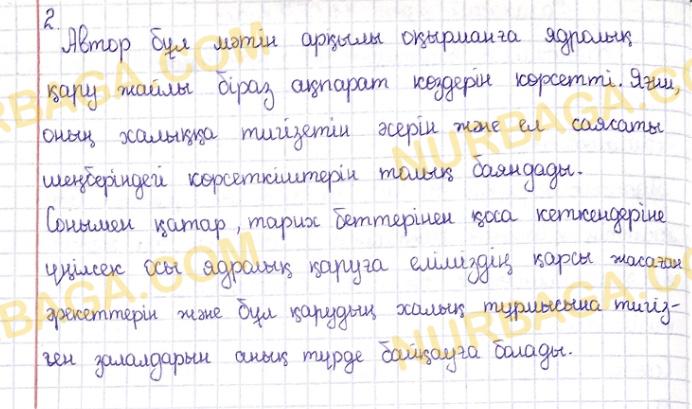 2.
Автор бұл мәтін арқылы оқырманға ядролық
қару жайлы біраз ақпарат көздерін көрсетті. Яғни,
оның халыққа тигізетін әсерін және ел саясаты
шеңберіндегі көрсеткіштерін толық баяндады.
Сонымен қатар, тарих беттерінен қоса кеткендеріне
үңілсек осы ядролық қаруға еліміздің қарсы жасаған
әрекеттерін және бұл қарудың халық тұрмысына тигіз-
ген залалдарын анық түрде байқауға болады.
NURBAGA.COM
NURBAGA.COM
NURBAGA.COM
NURBAGA.COM